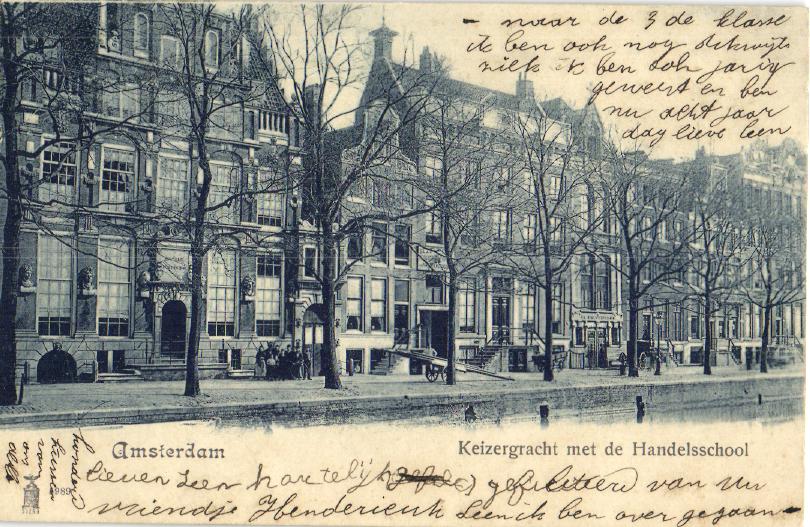 - naar de 3 de klasse
ik ben ook nog
ziek ik ben toh jarig
geweest en ben
nu acht jaar
dag lieve leen
Amsterdam
Keizergracht met de Handelsschool
lieven Leen hartelijk gefiliteerd van uw
vriendje Henderieuk Leen ik ben over gegaan -
honderd
kussen
van
ons
alle
989